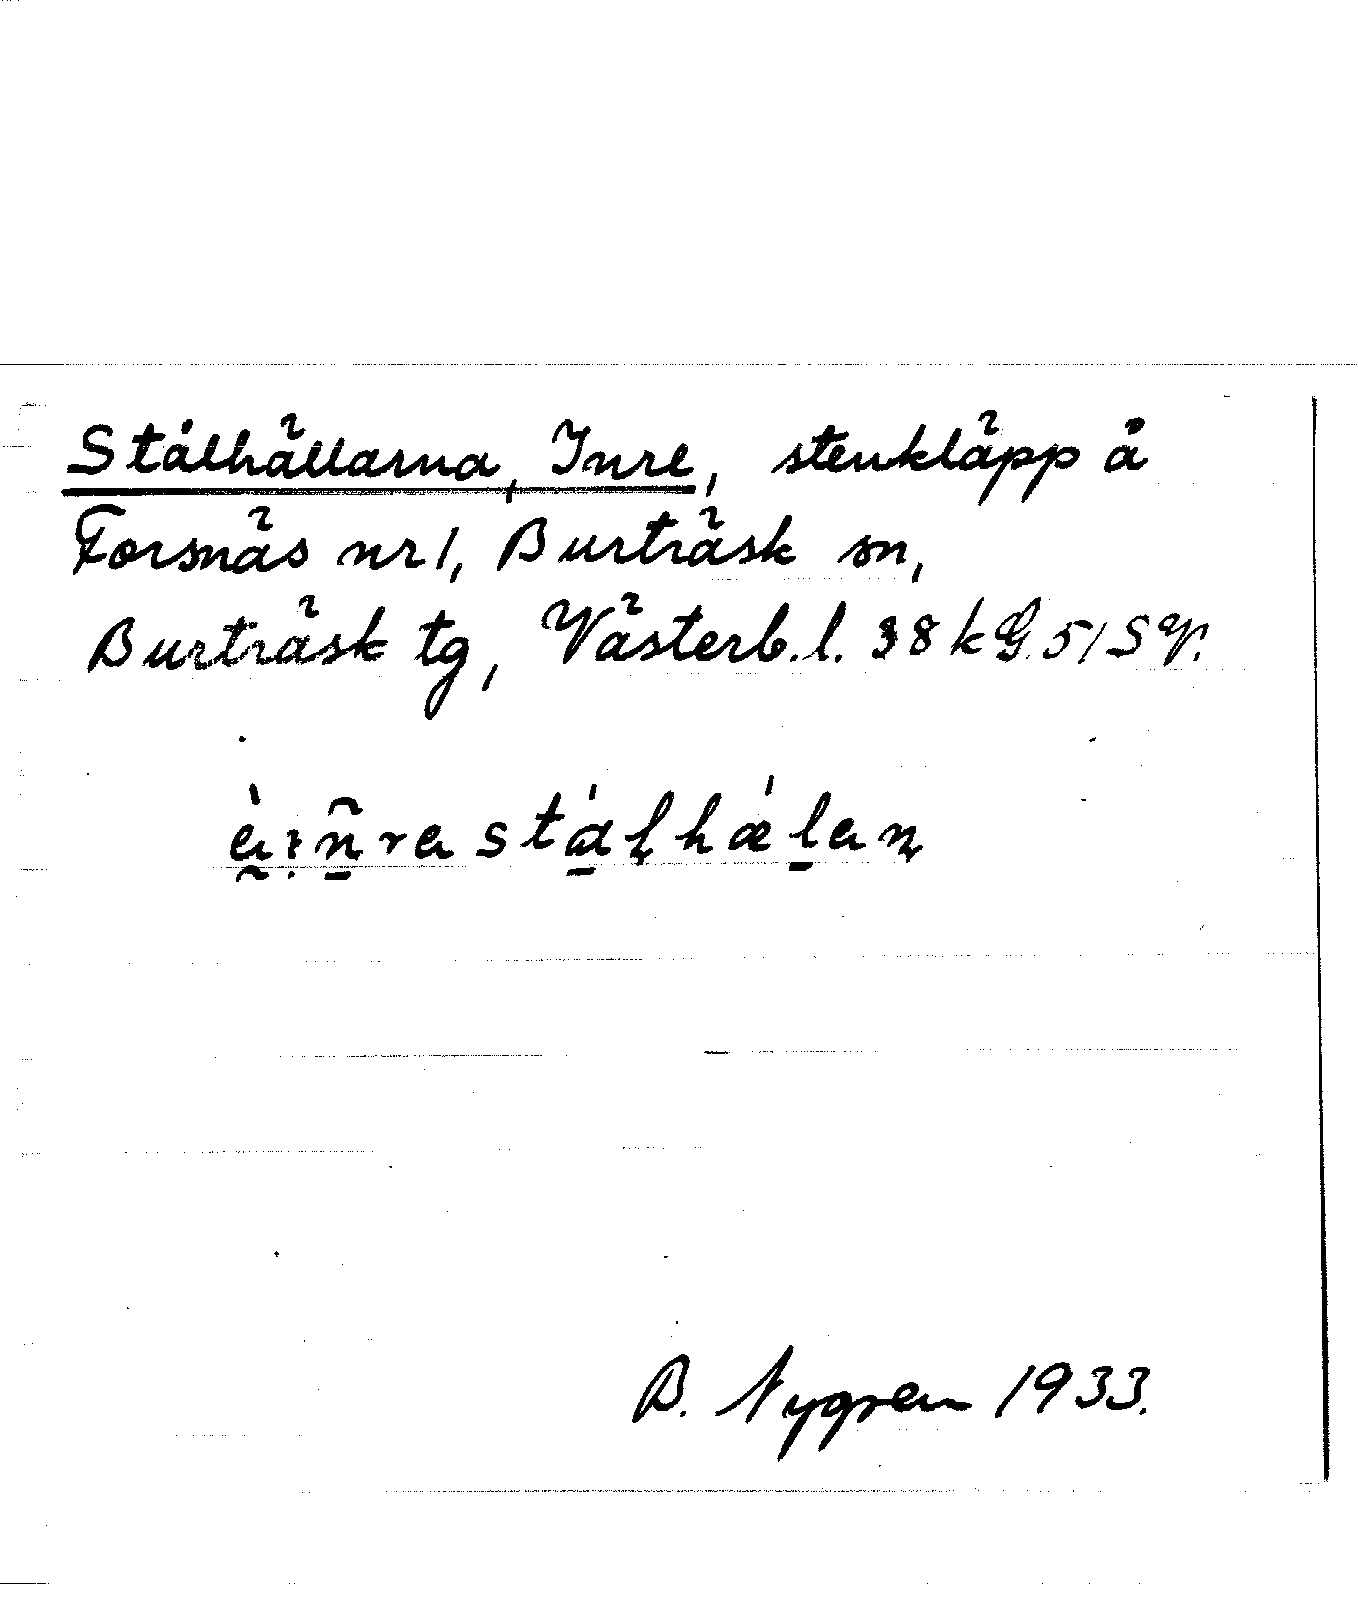 Stålhällarna, Inre, stenkläpp å
Forsnäs nr 1, Burträsk sn,
Burträsk tg, Västerb. l. 38 k G. 51 SV.
stålhælan
B. Nygren 1933.